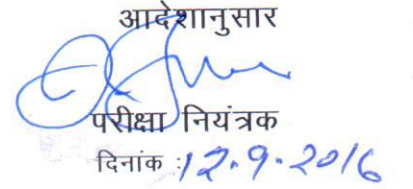 आदेशानुसार
परीक्षा नियंत्रक
दिनांक :12.9.2016